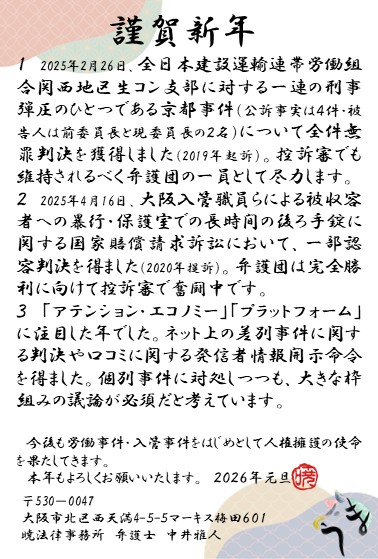 謹賀新年
1　2025年2月26日、全日本建設運輸連帯労働組
合関西地区生コン支部に対する一連の刑事
弾圧のひとつである京都事件(公訴事実は4件・被
告人は前委員長と現委員長の2名)について全件無
罪判決を獲得しました(2019年起訴)。控訴審でも
維持されるべく弁護団の一員として尽力します。
2　2025年4月16日、大阪入管職員らによる被収容
者への暴行・保護室での長時間の後ろ手錠に
関する国家賠償請求訴訟において、一部認
容判決を得ました(2020年提訴)。弁護団は完全勝
利に向けて控訴審で奮闘中です。
3　「アテンション・エコノミー」「プラットフォーム」
に注目した年でした。ネット上の差別事件に関す
る判決や口コミに関する発信者情報開示命令
を得ました。個別事件に対処しつつも、大きな枠
組みの議論が必須だと考えています。
今後も労働事件・入管事件をはじめとして人権擁護の使命
を果たしてきます。
本年もよろしくお願いいたします。 2026年元旦 暁
〒530-0047
大阪市北区西天満4-5-5マーキス梅田601
暁法律事務所　弁護士　中井雅人